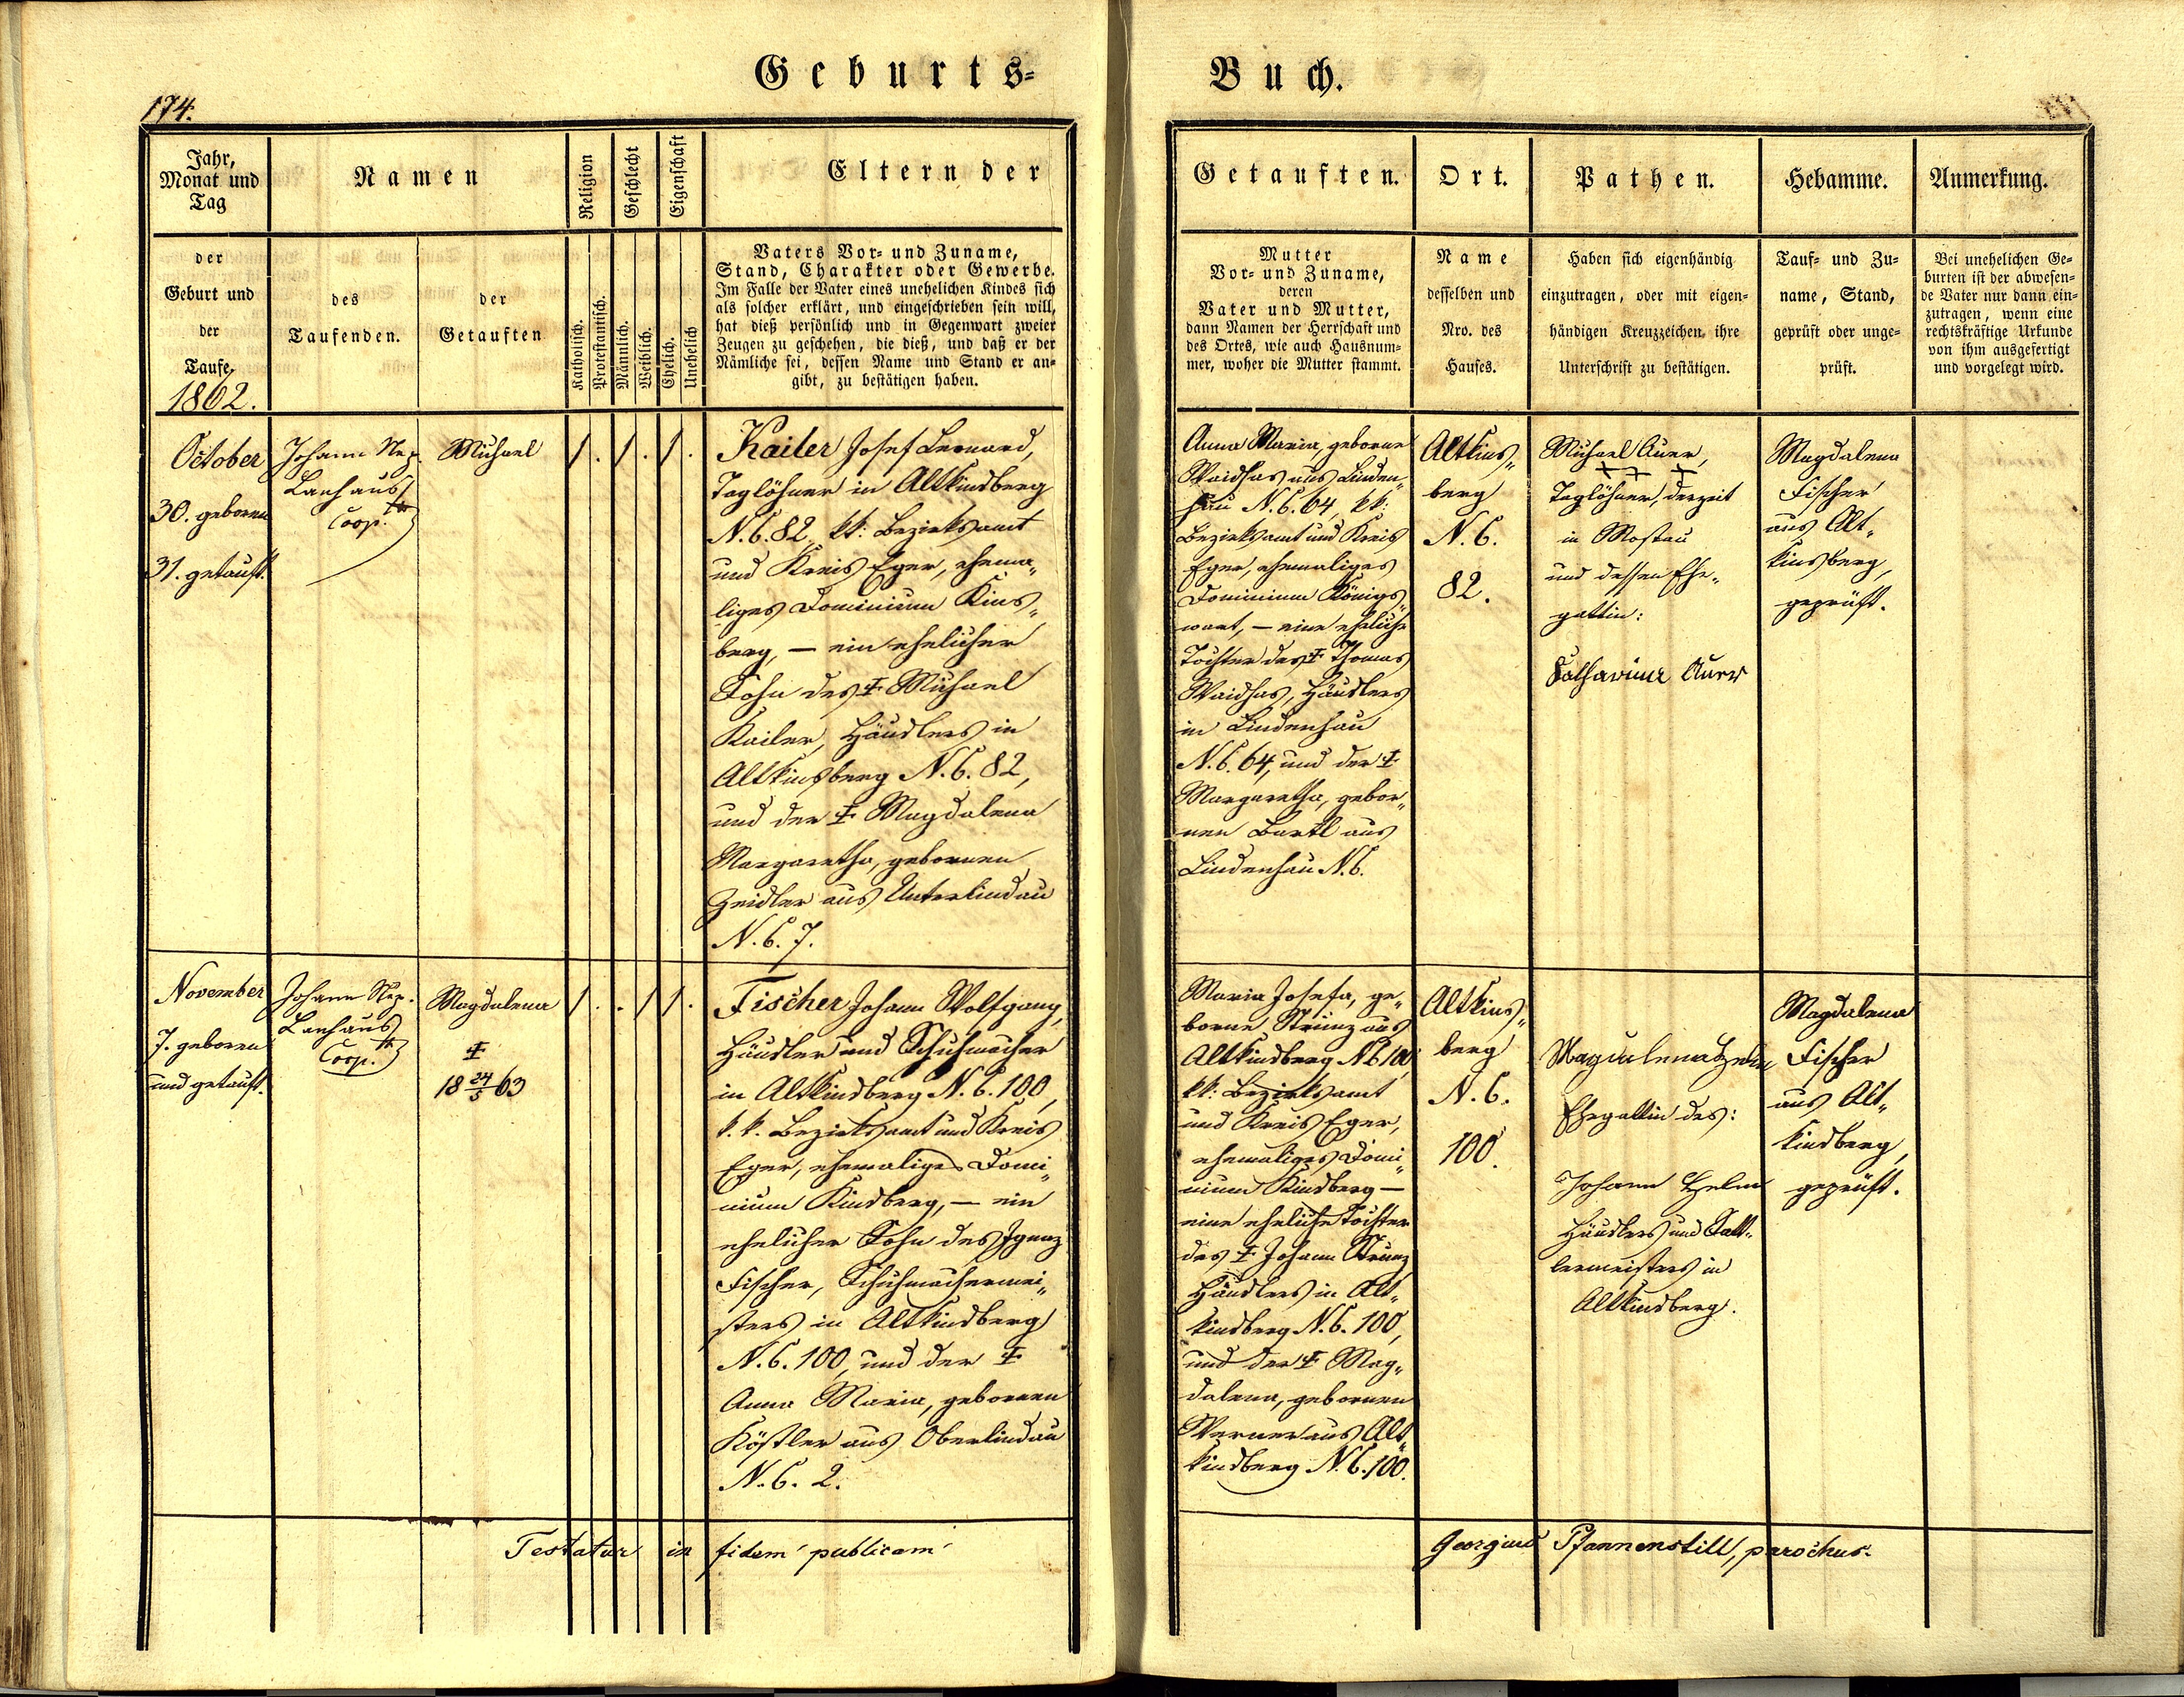 Geburts-
Buch.
174.
Jahr,
Monat und
Tag
Namen
Religion
Geschlecht
Eigenschaft
Eltern der
Getauften.
Ort.
Pathen.
Hebamme.
Anmerkung.
der
Geburt und
der
Taufe.
1862.
des
Taufenden.
der
Getauften
Katholisch.
Protestantisch.
Männlich.
Weiblich.
Ehelich.
Unehelich
Vaters Vor- und Zuname,
Stand, Charakter oder Gewerbe.
Im Falle der Vater eines unehelichen Kindes sich
als solcher erklärt, und eingeschrieben sein will,
hat dieß persönlich und in Gegenwart zweier
Zeugen zu geschehen, die dieß, und daß er der
Nämliche sei, dessen Name und Stand er an-
gibt, zu bestätigen haben.
Mutter
Vor- und Zuname,
deren
Vater und Mutter,
dann Namen der Herrschaft und
des Ortes, wie auch Hausnum-
mer, woher die Mutter stammt.
Name
desselben und
Nro. des
Hauses.
Haben sich eigenhändig
einzutragen, oder mit eigen-
händigen Kreuzzeichen ihre
Unterschrift zu bestätigen.
Tauf- und Zu-
name, Stand,
geprüft oder unge-
prüft.
Bei unehelichen Ge-
burten ist der abwesen-
de Vater nur dann ein-
zutragen, wenn eine
rechtskräftige Urkunde
von ihm ausgefertigt
und vorgelegt wird.
October
30. geboren
31. getauft.
Johann Nep.
Lanhaus
Coop.
Michael
1. 1. 1.
Kailer Josef Bernard,
Taglöhner in Altkindberg
N.C. 82, kk: Bezirksamt
und Kreis Eger, ehema„
liges Dominium Kins„
berg, – ein ehelicher
Sohn des ‡ Michael
Kailer, Häuslers in
Altkinsberg N.C. 82,
und der ‡ Magdalena
Margaretha, gebornen
Zeidler aus Unterlindau
N.C. 7.
Anna Maria, geborne
Waidhas aus Linden„
hau N.C. 64, kk:
Bezirksamt und Kreis
Eger, ehemaliges
Dominium Königs„
wart, – eine eheliche
Tochter des ‡ Thomas
Waidhas, Häuslers
in Lindenhau
N.C. 64, und der ‡
Margaretha, gebor„
nen Bartl aus
Lindenhau N.C.
Altkins„
berg
N.C.
82.
Michael Auer,
+ + +
Taglöhner, derzeit
in Mostau
und dessen Ehe„
gattin:
Katharina Auer
Magdalena
Fischer
aus Alt„
kinsberg,
geprüft.
November
7. geboren
und getauft.
Johann Nep.
Lanhaus
Coop.
Magdalena
‡
18 24/5 63
1. . 1 1.
Fischer Johann Wolfgang,
Häusler und Schuhmacher
in Altkindberg N.C. 100,
k.k. Bezirksamt und Kreis
Eger, ehemaliges Domi„
nium Kindberg, – ein
ehelicher Sohn des Ignaz
Fischer, Schuhmachermei„
sters in Altkindberg
N.C. 100, und der ‡
Anna Maria, gebornen
Köstler aus Oberlindau
N.C. 2.
Maria Josefa, ge„
borne Strunz aus
Altkindberg N.C. 100,
kk: Bezirksamt
und Kreis Eger,
ehemaliges Domi„
nium Kindberg –
eine eheliche Tochter
des ‡ Johann Strunz
Häuslers in Alt„
kindberg N.C. 100,
und der ‡ Mag„
dalena, gebornen
Werner aus Alt„
kindberg N.C. 100.
Altkins„
berg
N.C.
100.
Magdalena Helm
Ehegattin des:
Johann Helm
Häuslers und Satt„
lermeisters in
Altkindberg.
Magdalena
Fischer
aus Alt„
kindberg,
geprüft.
Testatur in fidem publicam
Georgius Pfannenstill, parochus.